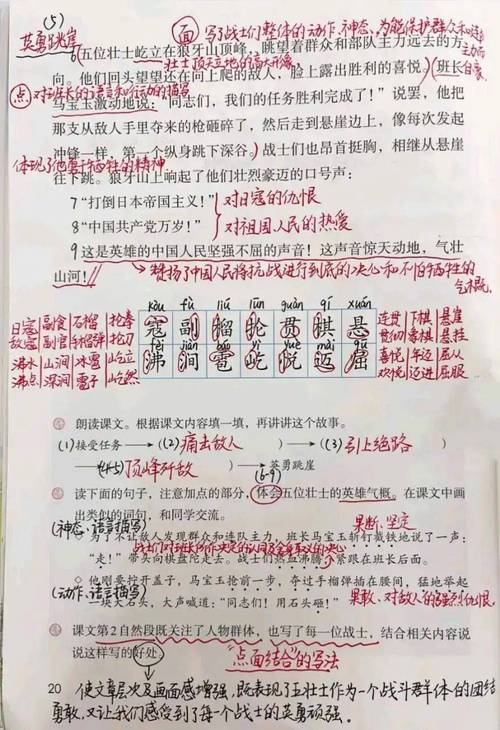 (5)
英勇跳崖
面 写了战士们整体的动作、神态,为能保护群众和连队主力而自豪
6 五位壮士屹立在狼牙山顶峰,眺望着群众和部队主力远去的方
壮士顶天立地的高大形象
向。他们回头望望还在向上爬的敌人,脸上露出胜利的喜悦。班长
点 对班长的语言和行动的描写
马宝玉激动地说:“同志们,我们的任务胜利完成了!”说罢,他把
那支从敌人手里夺来的枪砸碎了,然后走到悬崖边上,像每次发起
冲锋一样,第一个纵身跳下深谷。战士们也昂首挺胸,相继从悬崖
体现了他勇于牺牲的精神
往下跳。狼牙山上响起了他们壮烈豪迈的口号声:
7 “打倒日本帝国主义!” 对日寇的仇恨
8 “中国共产党万岁!” 对祖国人民的热爱
9 这是英雄的中国人民坚强不屈的声音!这声音惊天动地,气壮
山河! 赞扬了中国人民将抗战进行到底的决心和不怕牺牲的气概。
kòu fù liú lūn guàn qí xuán
日寇 副食 石榴 抡拳 寇 副 榴 抡 贯 棋 悬 连贯 下棋 悬崖
敌寇 副官 手榴弹 抡刀 贯彻 象棋 悬挂
fèi jiàn báo yì yuè mài qū
沸水 山涧 冰雹 屹立 沸 涧 雹 屹 悦 迈 屈 喜悦 年迈 屈从
沸点 深涧 雹子 屹然 欢悦 迈进 屈服
朗读课文。根据课文内容填一填,再讲讲这个故事。
(1)接受任务 → ((2)痛击敌人) → ((3)引上绝路)
→ ((4-5)顶峰歼敌) → 英勇跳崖
(6-9)
读下面的句子,注意加点的部分,体会五位壮士的英雄气概。在课文中画
出类似的词句,和同学交流。
(神态、语言描写) 果断、坚定
◇ 为了不让敌人发现群众和连队主力,班长马宝玉斩钉截铁地说了一声:
“走!”带头向棋盘陀走去。战士们热血沸腾,紧跟在班长后面。
(动作、语言描写)
◇ 他刚要拧开盖子,马宝玉抢前一步,夺过手榴弹插在腰间,猛地举起
一块大石头,大声喊道:“同志们!用石头砸!” 果敢、对敌人的强烈仇恨。
课文第2自然段既关注了人物群体,也写了每一位战士,结合相关内容说
说这样写的好处。 “点面结合”的写法
20 使文章层次及画面感增强,既表现了五壮士作为一个战斗群体的团结
勇敢,又让我们感受到了每个战士的英勇顽强。